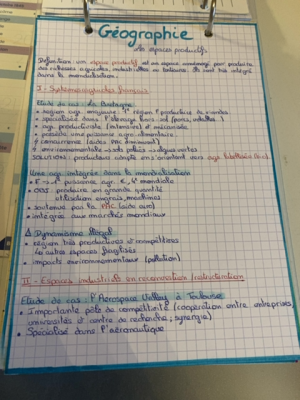 Géographie
les espaces productifs
Définition : un espace productif est un espace aménagé pour produire
des richesses agricoles, industrielles ou tertiaires. Ils sont très intégré
dans la mondialisation.
I - Systèmes agricoles français
Etude de cas : La Bretagne
• région agr. majeure, 1e région productrice de viandes
• spécialisée dans l'élevage hors sol (porcs, volailles..)
• agr. productiviste (intensive) et mécanisée
• possède une puissance agro-alimentaire.
≠ concurrence (aides PAC diminuent)
≠ environnementale → sols pollués + algues vertes
SOLUTION : producteurs s'orientent vers agr.
Une agr. intégrée dans la mondialisation
• F → 1e puissance agr. €, mondiale
• OBJ : produire en grande quantité
utilisation engrais, machines
• soutenus par la PAC (aide)
• intégrée aux marchés mondiaux
Dynamisme inégal
• région très productives et compétitives
les autres espaces fragilisés
• impacts environnementaux (pollution)
II - Espaces industriels en reconversion /
Etude de cas : l'Aerospace Valley à Toulouse
• Importante pôle de compétitivité (coopération entre entreprises,
universités et centre de recherche ; synergie)
• Spécialisé dans l'aéronautique